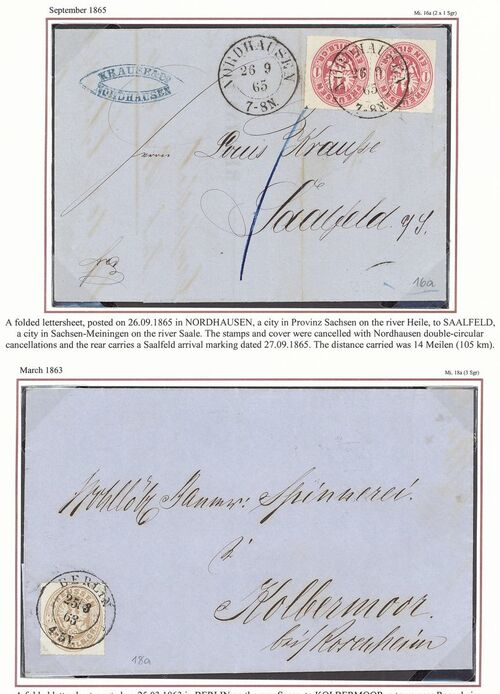 September 1865
Mi. 16a (2 x 1 Sgr)
KRAUSE & Co
NORDHAUSEN
NORDHAUSEN
26 9
65
7-8N.
NORDHAUSEN
26 9
65
7-8N.
Herrn Louis Krauße
Saalfeld a/S.
16a
A folded lettersheet, posted on 26.09.1865 in NORDHAUSEN, a city in Provinz Sachsen on the river Heile, to SAALFELD,
a city in Sachsen-Meiningen on the river Saale. The stamps and cover were cancelled with Nordhausen double-circular
cancellations and the rear carries a Saalfeld arrival marking dated 27.09.1865. The distance carried was 14 Meilen (105 km).
March 1863
Mi. 18a (3 Sgr)
Spinnerei.
Kolbermoor
bei Rosenheim
BERLIN
63
18a